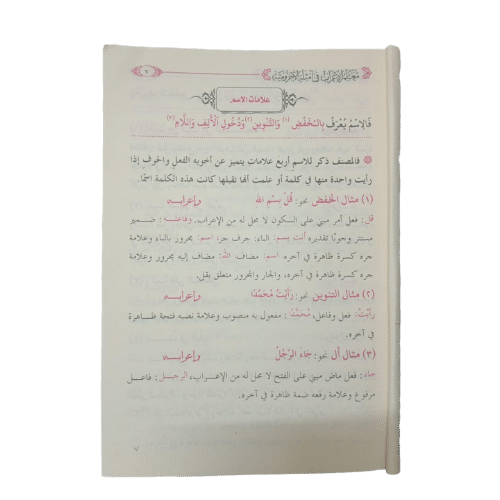 معلم الإعراب في أمثلة الآجرومية
٧
علامات الاسم
فَالِاسْمُ يُعْرَفُ بِالْخَفْضِ (١) وَالتَّنْوِينِ (٢) وَدُخُولِ الْأَلِفِ وَاللَّامِ (٣)
فالمصنف ذكر للاسم أربع علامات يتميز عن أخويه الفعل والحرف إذا
رأيت واحدة منها في كلمة أو علمت أنها تقبلها كانت هذه الكلمة اسمًا.
(١) مثال الخفض نحو: قُلْ بِسْمِ الله وإعرابه
قل: فعل أمر مبني على السكون لا محل له من الإعراب. وفاعله: ضمير
مستتر وجوبًا تقديره أنت بسم: الباء: حرف جر، اسم: مجرور بالباء وعلامة
جره كسرة ظاهرة في آخره اسم: مضاف الله: مضاف إليه مجرور وعلامة
جره كسرة ظاهرة في آخره، والجار والمجرور متعلق بقل.
(٢) مثال التنوين نحو: رَأَيْتُ مُحَمَّدًا وإعرابه
رَأَيْتُ: فعل وفاعل، مُحَمَّدًا: مفعول به منصوب وعلامة نصبه فتحة ظاهرة
في آخره.
(٣) مثال أل نحو: جَاءَ الرَّجُلُ وإعرابه
جاء: فعل ماض مبني على الفتح لا محل له من الإعراب، الرجل: فاعل
مرفوع وعلامة رفعه ضمة ظاهرة في آخره.
٧